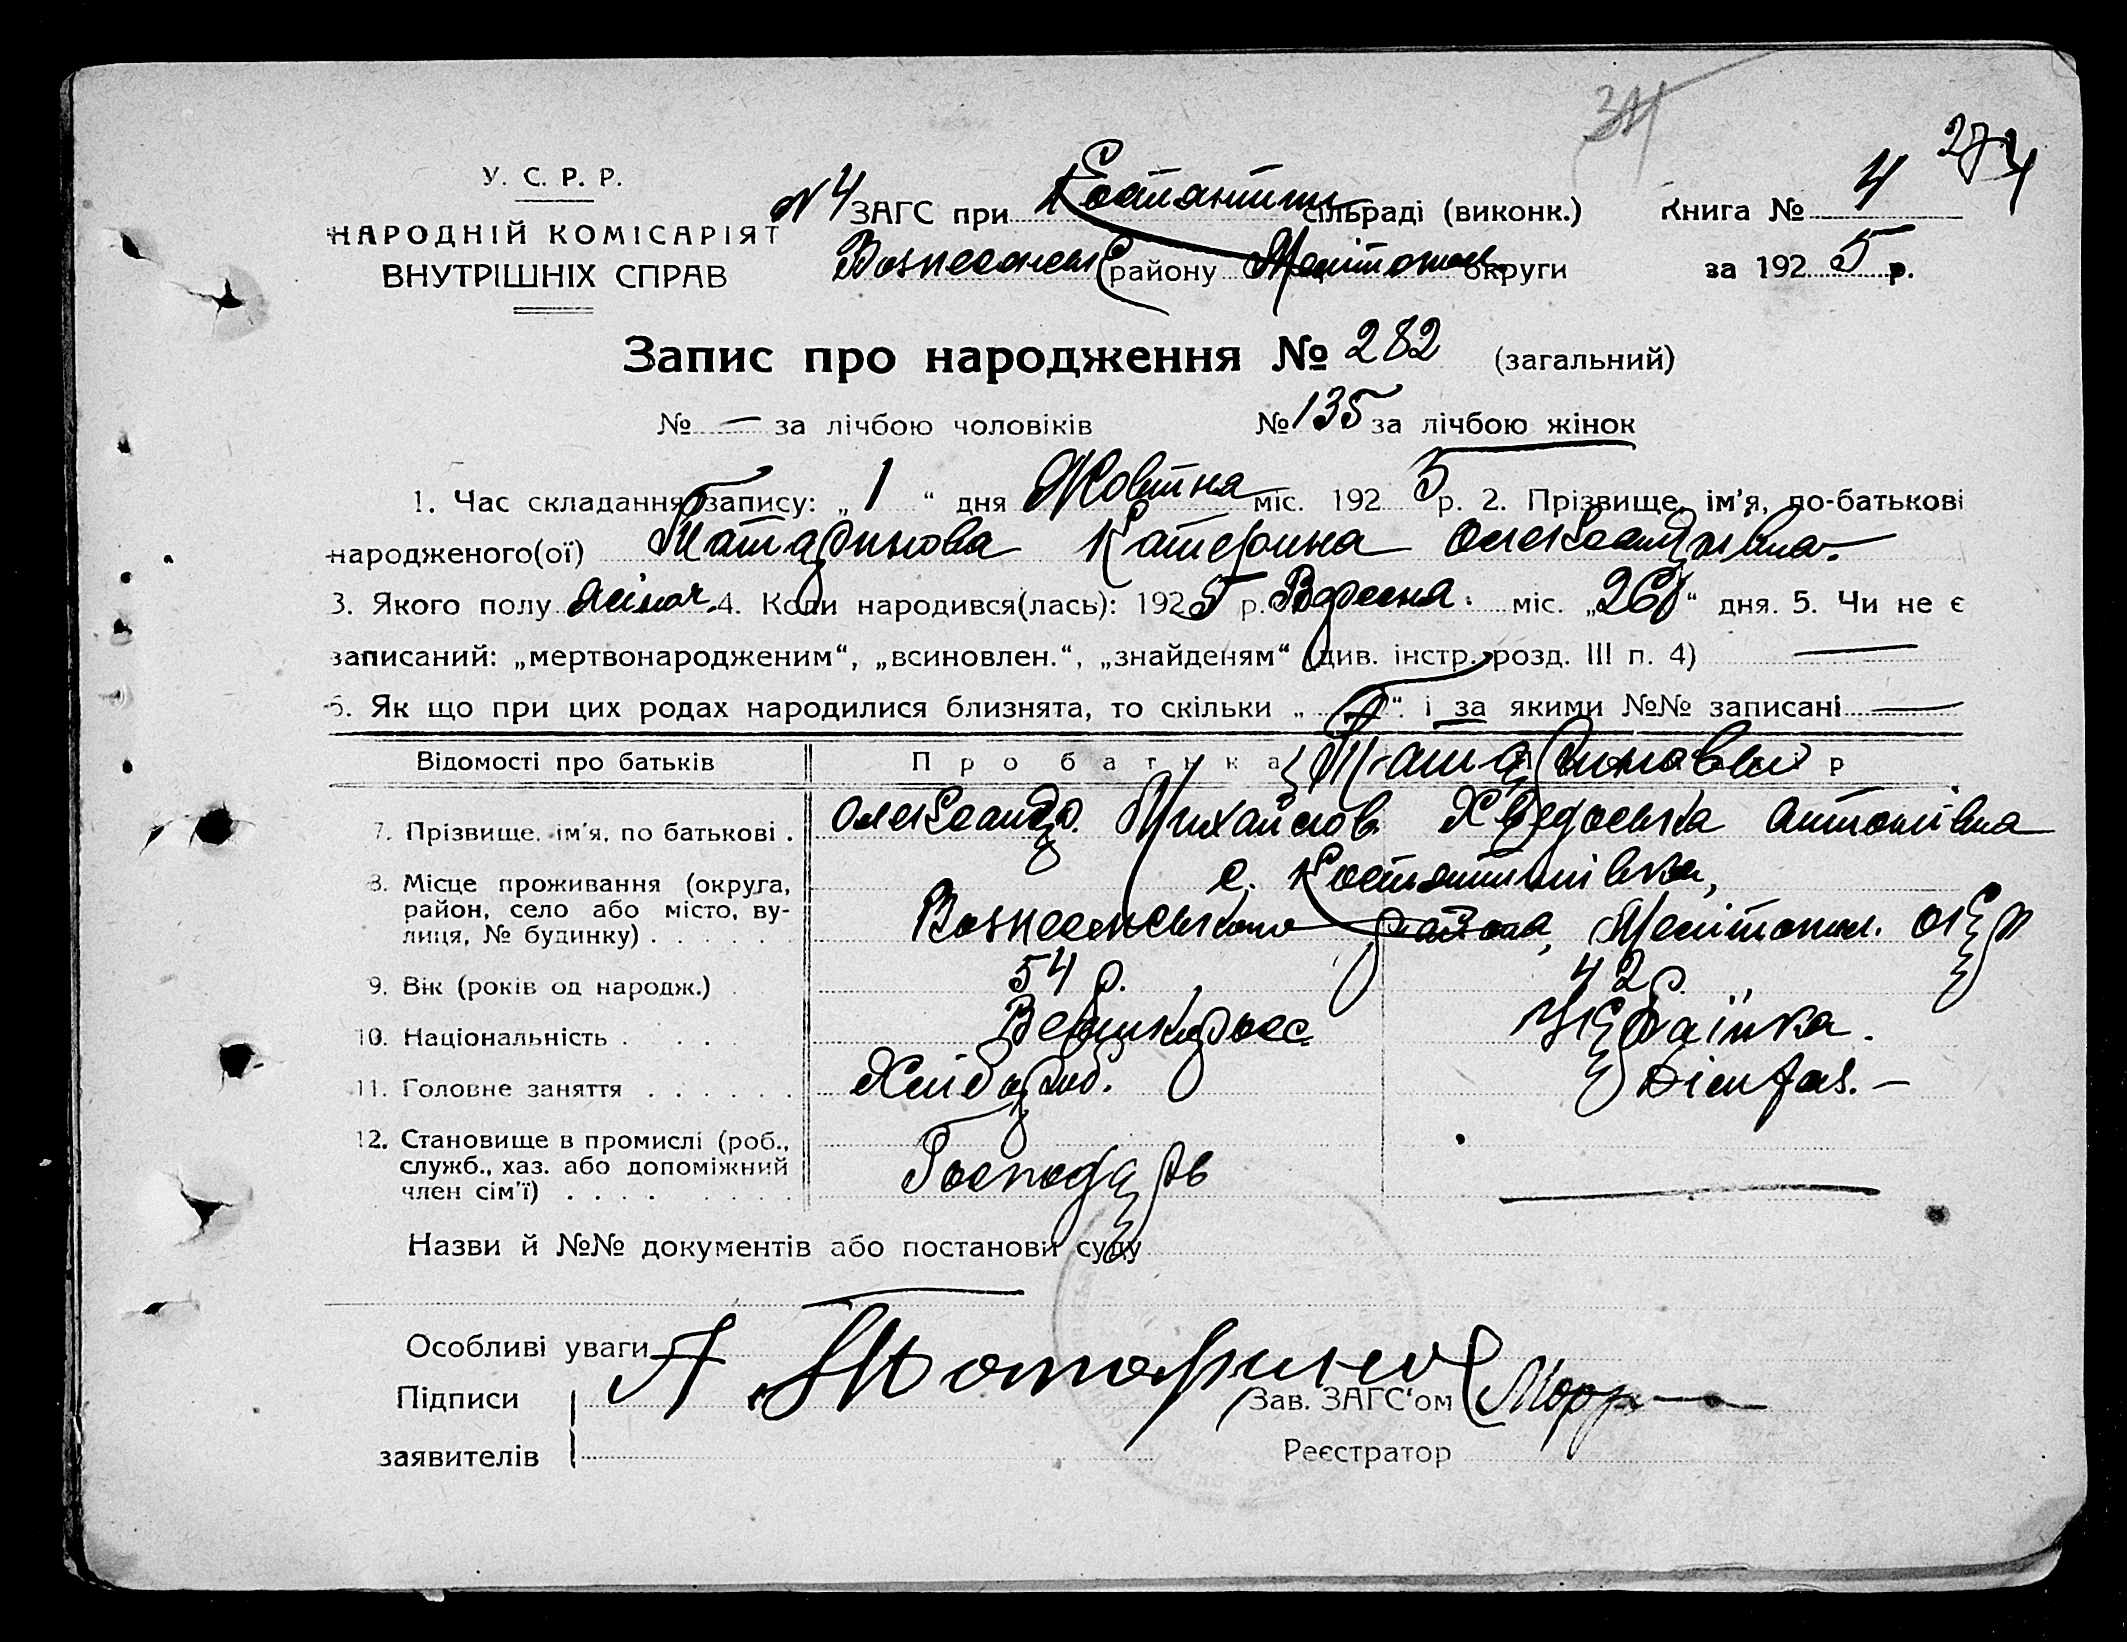 34
274
У. С. Р. Р.
НАРОДНІЙ КОМІСАРІЯТ
ВНУТРІШНІХ СПРАВ
№ 4 ЗАГС при Костянтин сільраді (виконк.) Книга № 4
Вознесенськ району Мелітопол округи за 1925 р.
Запис про народження № 282 (загальний)
№ — за лічбою чоловіків № 135 за лічбою жінок
1. Час складання запису: „ 1 “ дня Жовтня міс. 1925 р. 2. Прізвище, ім'я, по-батькові
народженого(ої) Татаринова Катерина Олександрівна.
3. Якого полу жіноч. 4. Коли народився(лась): 1925 р. Вересня міс. „26“ дня. 5. Чи не є
записаний: „мертвонародженим“, „всиновлен.“, „знайденям“ (див. інстр. розд. III п. 4) —
6. Як що при цих родах народилися близнята, то скільки „ “ і за якими №№ записані —
Відомості про батьків Про батька Татаринови р
7. Прізвище, ім'я, по батькові . Олександр. Михайлов. Хведоська Антонівна
8. Місце проживання (округа, район, село або місто, вулиця, № будинку) . . . . . . с. Костянтинівка,
Вознесенського района, Мелітопол. окр
9. Вік (років од народж.) 54 р. 42 р.
10. Національність . . . . Великорос. Українка.
11. Головне заняття . . . . . . Хлібороб. —
12. Становище в промислі (роб., служб., хаз. або допоміжний член сім'ї) . . . . . . . . Господарь —
Назви й №№ документів або постанови суду
—
Особливі уваги
Підписи А Татаринов Зав. ЗАГС'ом
заявителів Реєстратор